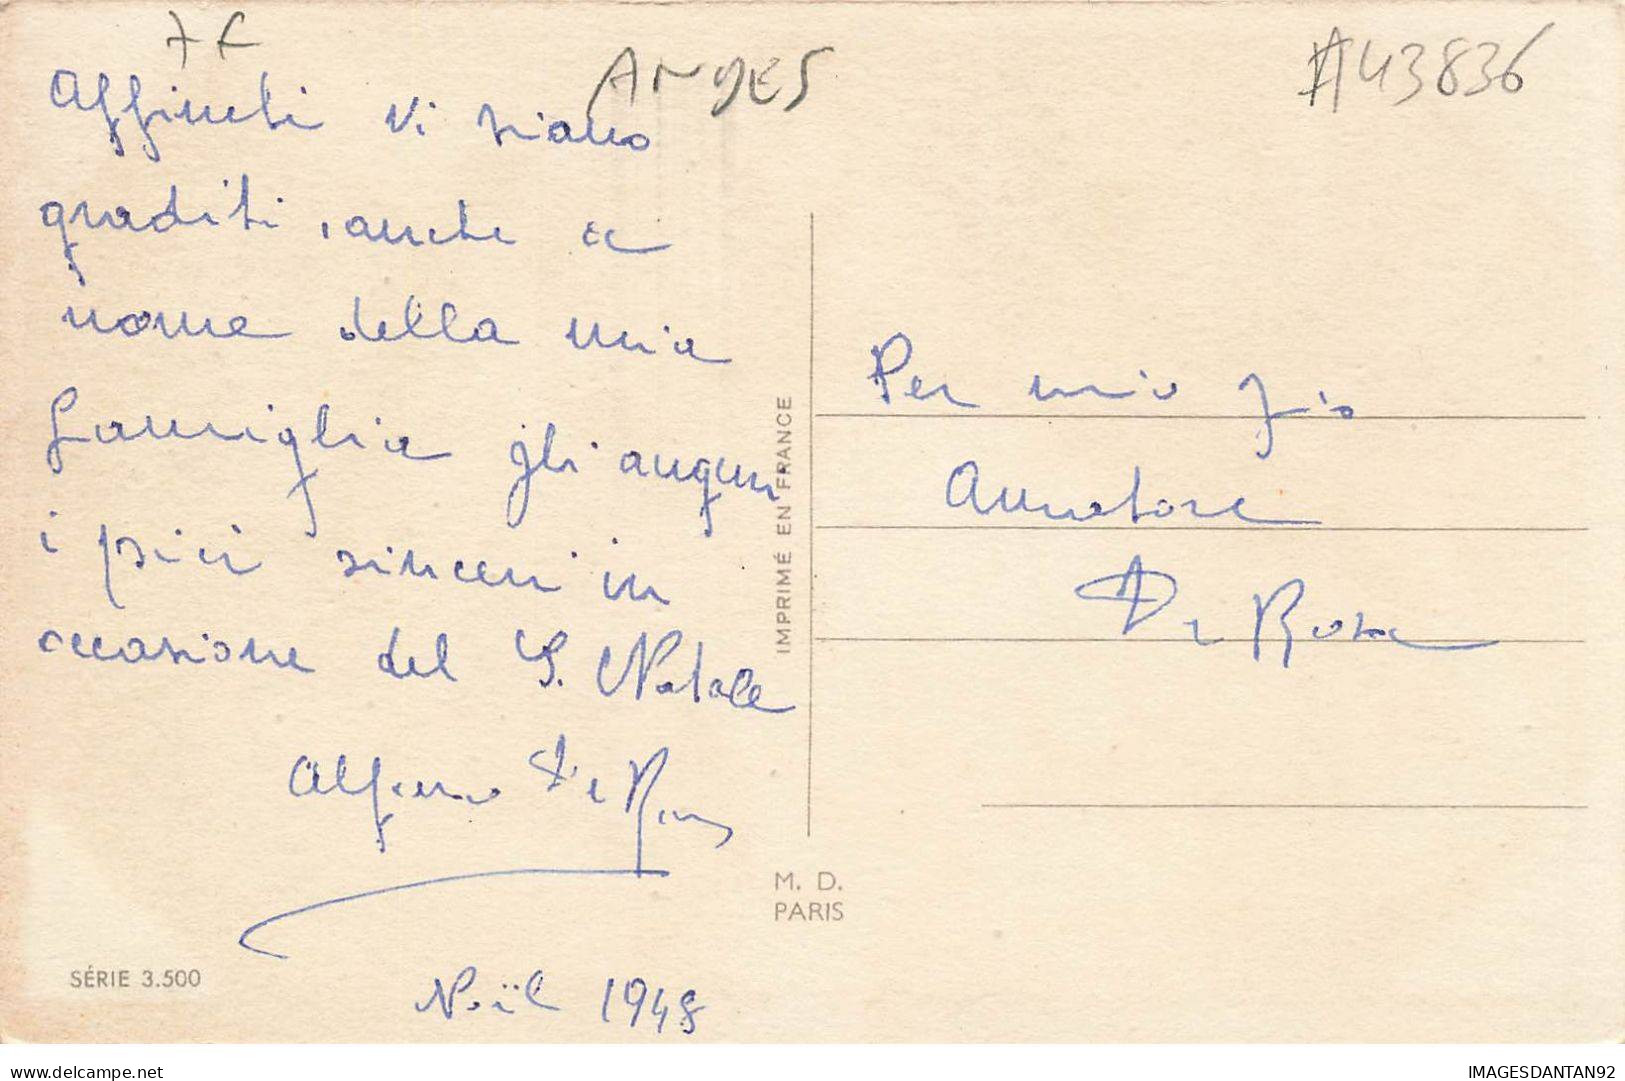 7 €
ANGES
#43836
Affinchi vi siano
graditi, anche a
nome della mia
famiglia gli augur
i più sinceri in
occasione del S. Natale
Alfonso De Rosa
Noël 1948
SÉRIE 3.500
IMPRIMÉ EN FRANCE
M. D.
PARIS
Per mio zio
Amatore
De Rosa
www.delcampe.net
IMAGESDANTAN92